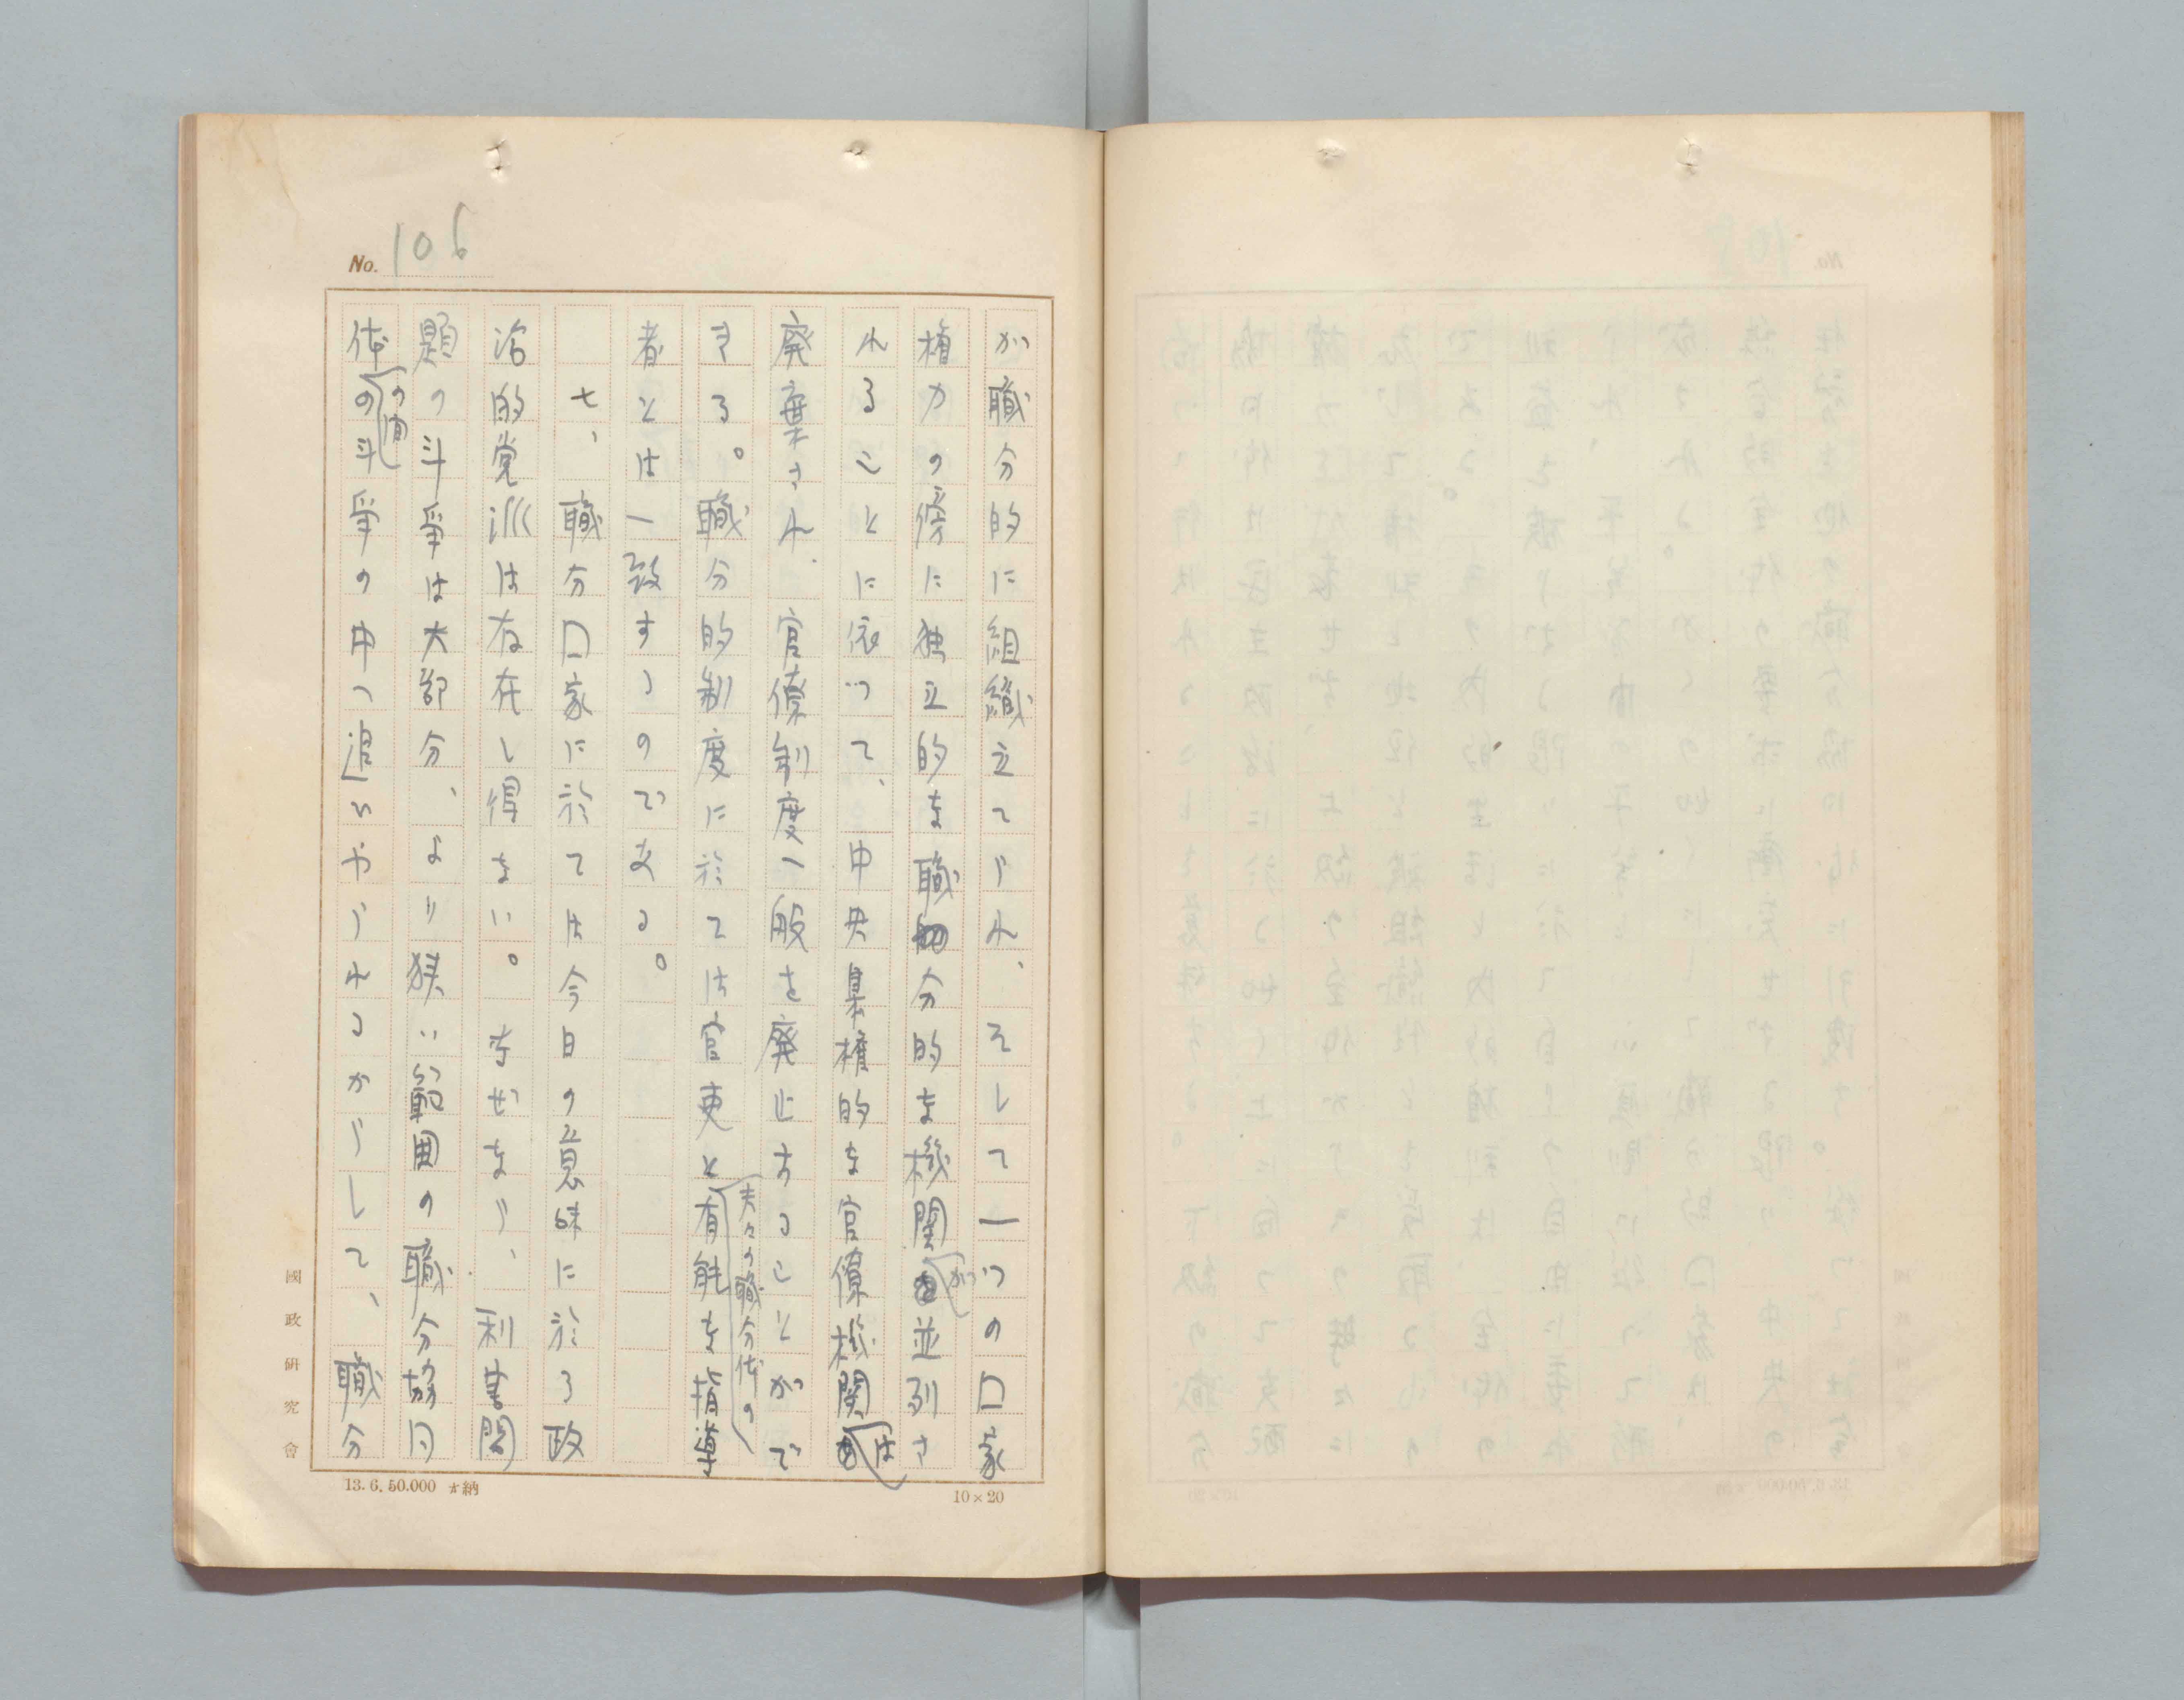 No. 106
が職分的に組織立てられ、そして一つの口家
権力の傍に独立的な職分的な機関が並列さ
れることに依つて、中央集権的な官僚機関は
廃棄され、官僚制度一般を廃止することがで
きる。職分的制度に於ては官吏と夫々の職分体の有能な指導
者とは一致するのである。
七、職分口家に於ては今日の意味に於る政
治的党派は存在し得ない。なぜなら、利害関
題の斗爭は大部分、より狭い範囲の職分協同
体の間の斗爭の中へ追いやられるからして、職分
國政研究會
13.6.50.000 納
10×20